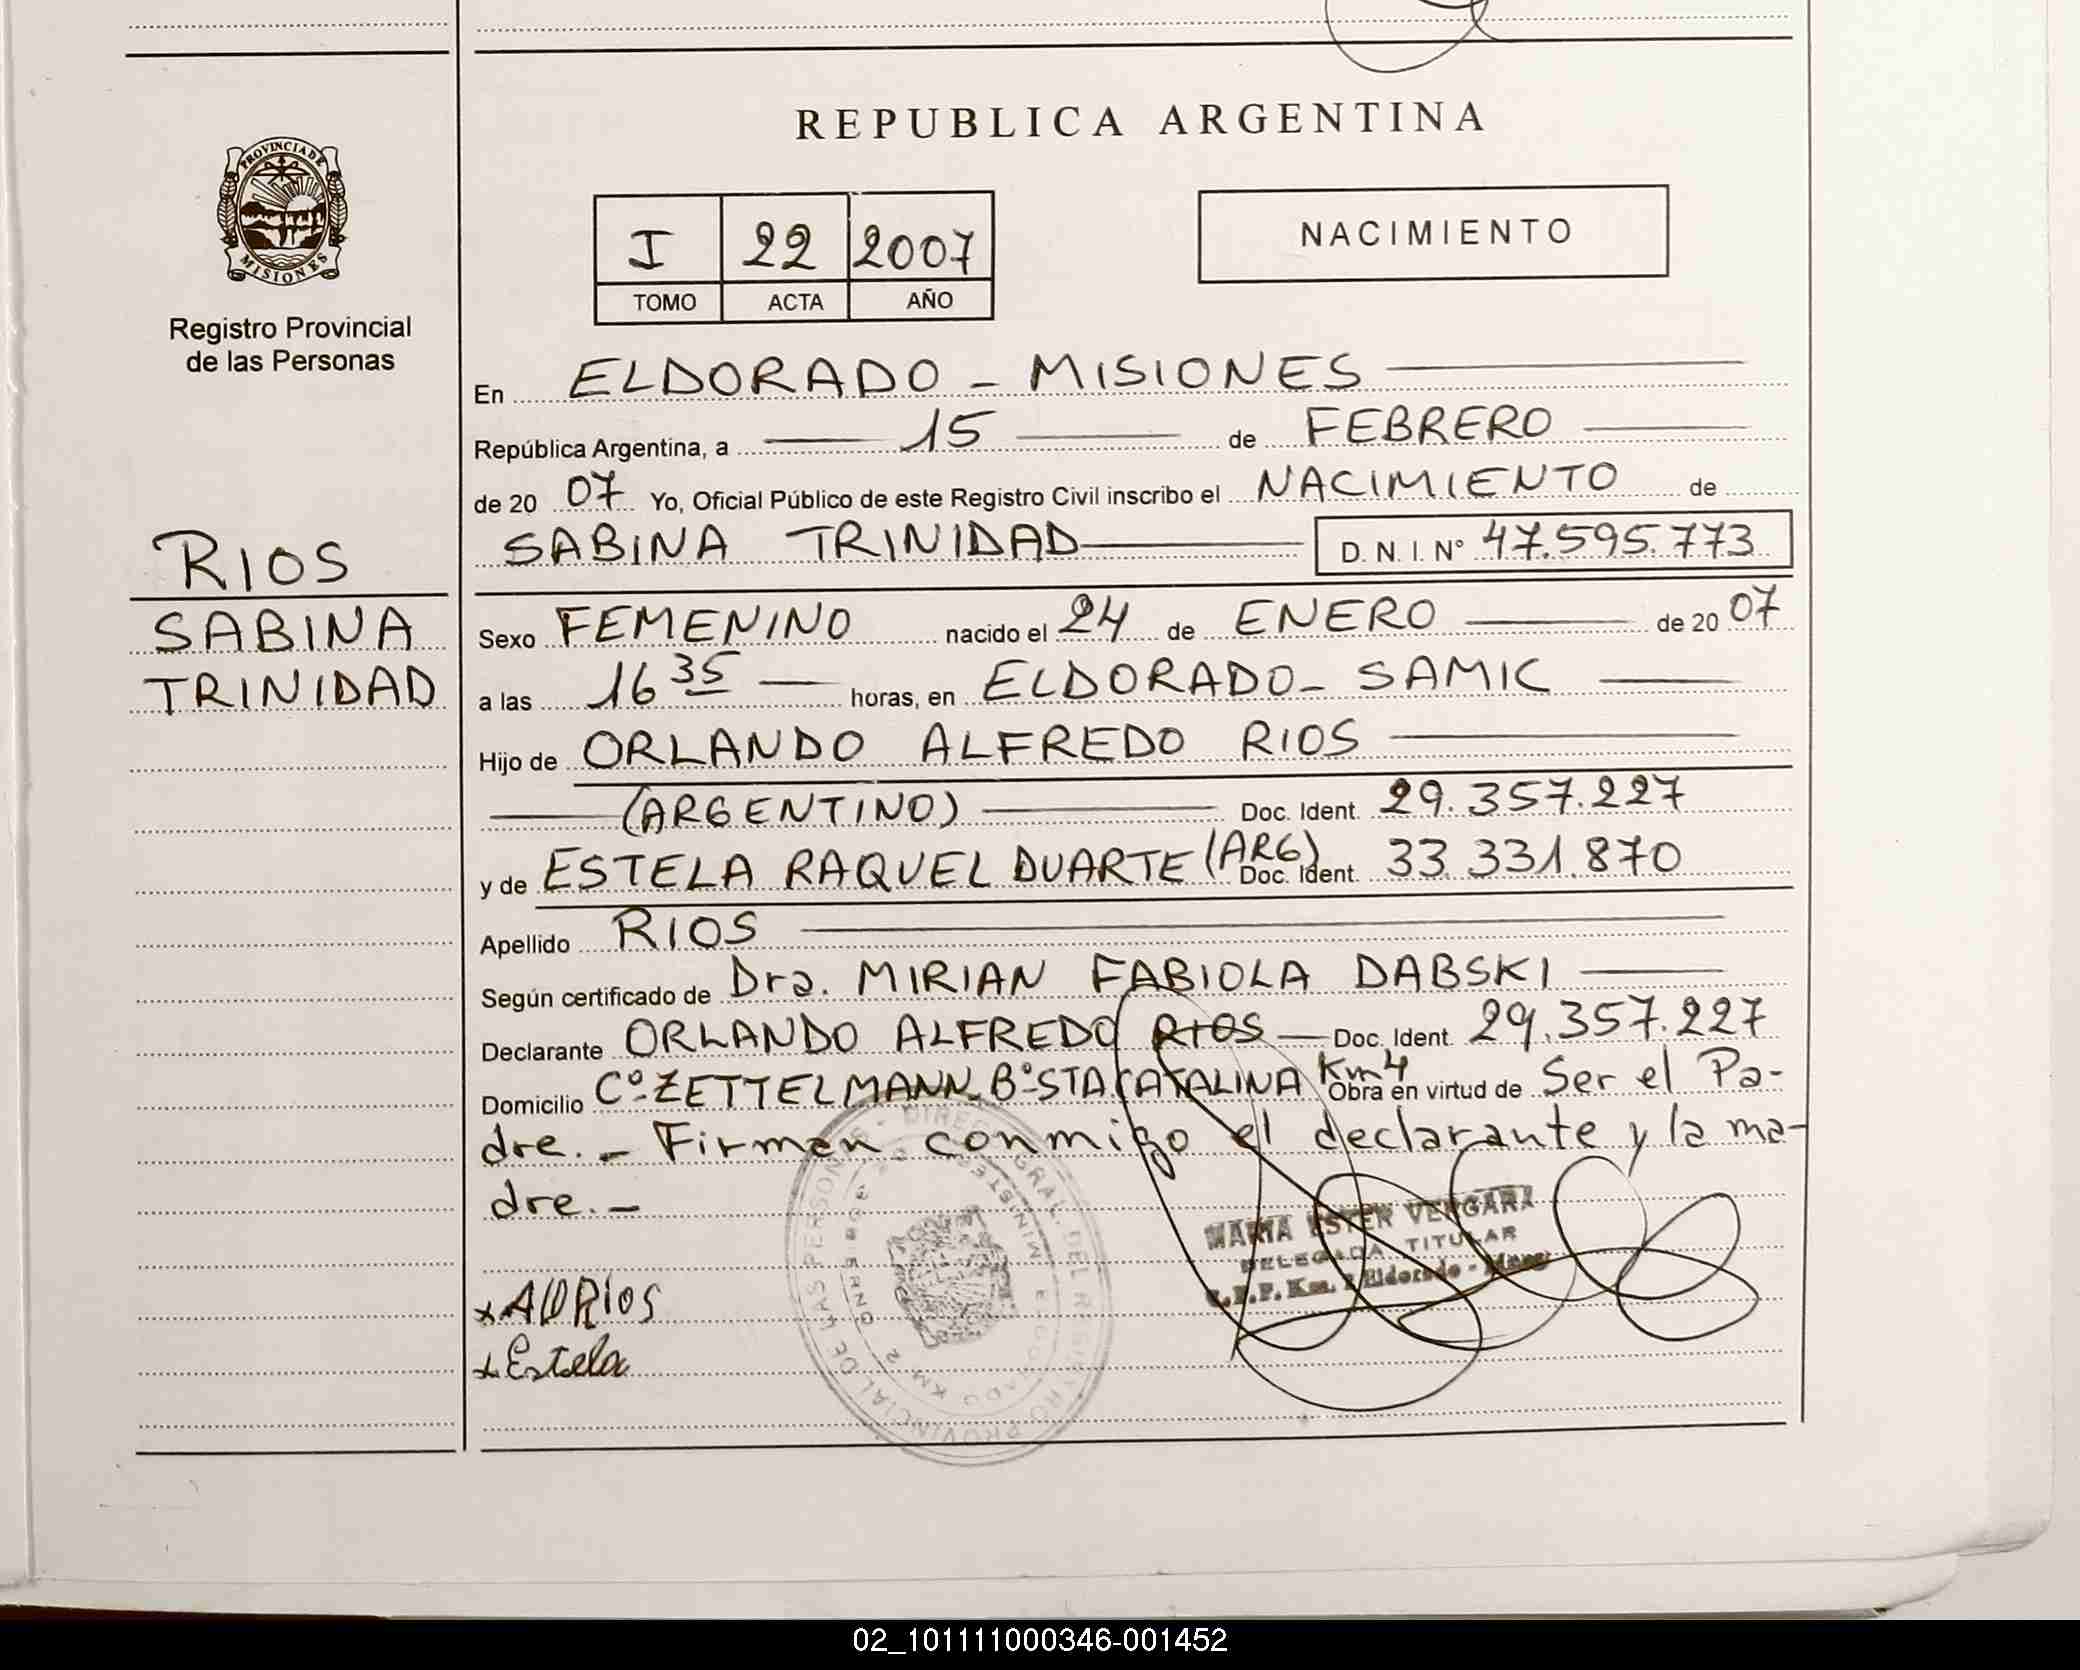 REPUBLICA ARGENTINA
PROVINCIA DE
MISIONES
Registro Provincial
de las Personas
I 22 2007
TOMO ACTA AÑO
NACIMIENTO
En ELDORADO - MISIONES
República Argentina, a 15 de FEBRERO
de 20 07 Yo, Oficial Público de este Registro Civil inscribo el NACIMIENTO de
SABINA TRINIDAD D.N.I. Nº 47.595.773
RIOS
SABINA
TRINIDAD
Sexo FEMENINO nacido el 24 de ENERO de 20 07
a las 16 35 horas, en ELDORADO - SAMIC
Hijo de ORLANDO ALFREDO RIOS
(ARGENTINO) Doc. Ident. 29.357.227
y de ESTELA RAQUEL DUARTE (ARG) Doc. Ident. 33.331.870
Apellido RIOS
Según certificado de Dra. MIRIAN FABIOLA DABSKI
Declarante ORLANDO ALFREDO RIOS Doc. Ident. 29.357.227
Domicilio Cº ZETTELMANN - Bº STA CATALINA Km 4 Obra en virtud de Ser el Pa-
dre. - Firman conmigo el declarante y la ma-
dre. -
MARIA ESTER VERGARA
DELEGADA TITULAR
Km. 2 Eldorado - Mnes
x Rios
x Estela
DIREC. GRAL. DEL REGISTRO PROVINCIAL DE LAS PERSONAS
MINISTERIO DE GOBIERNO
ELDORADO KM 2
02_101111000346-001452